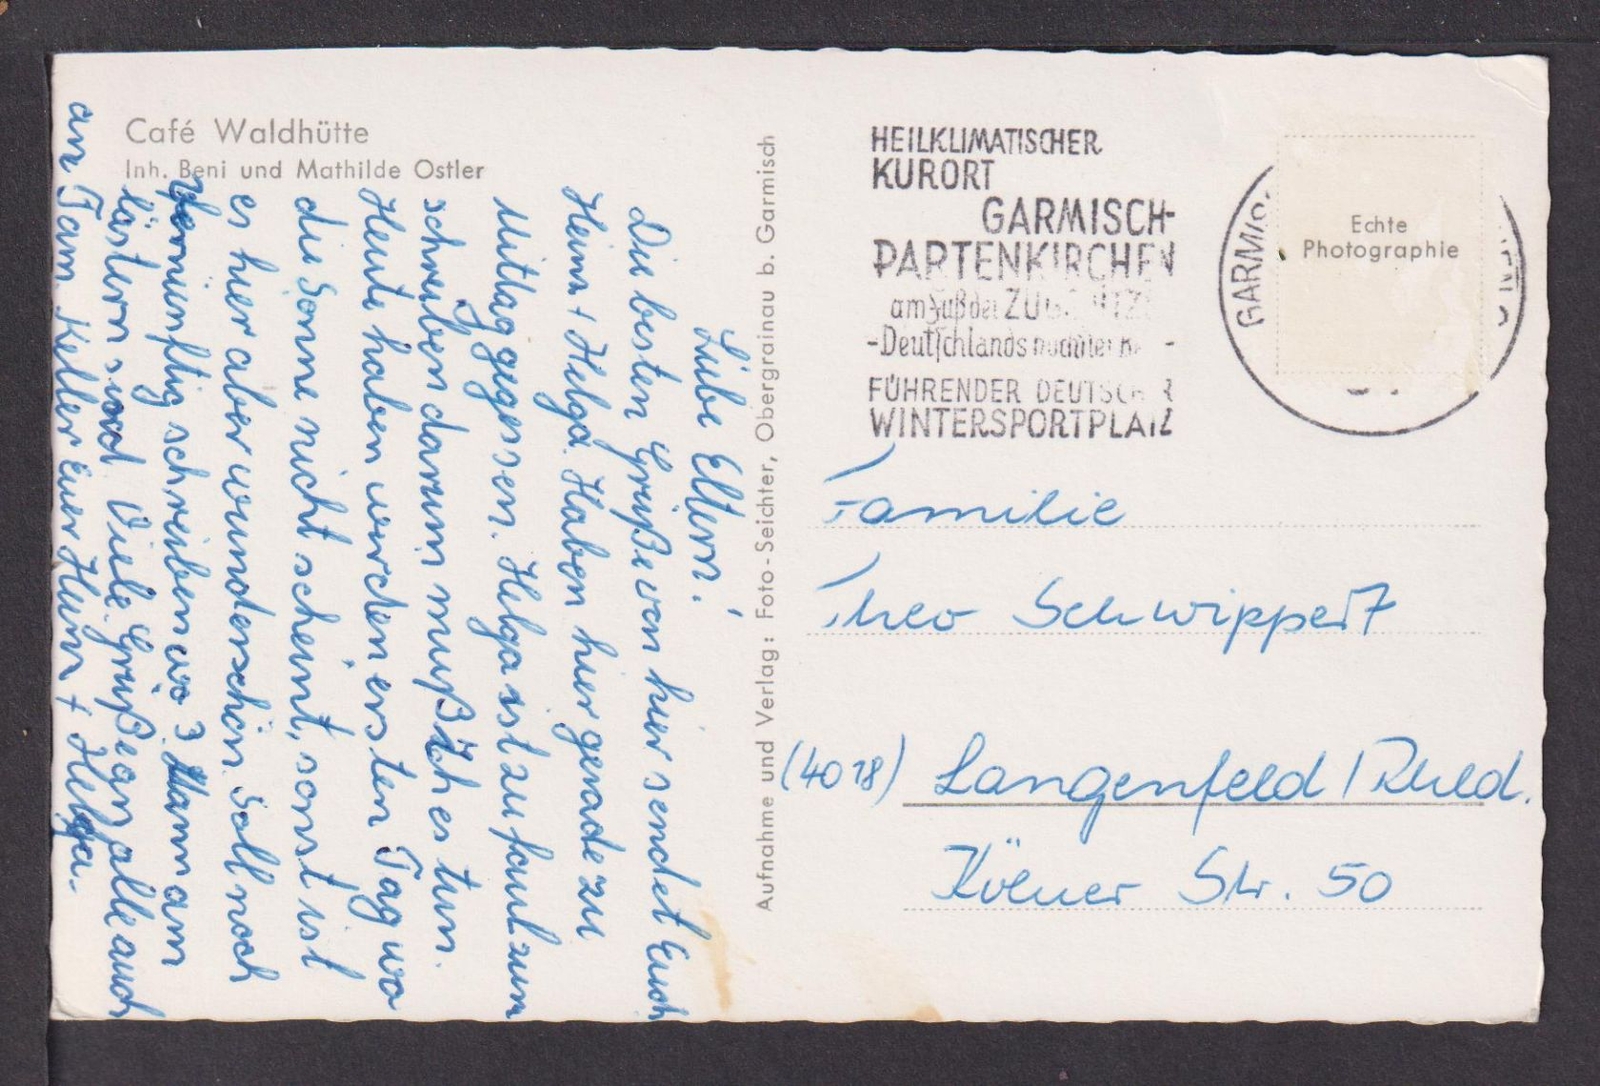 Café Waldhütte
Inh. Beni und Mathilde Ostler
Liebe Eltern!
Die besten Grüße von hier sendet Euch
Heinz + Helga. Haben hier gerade zu
Mittag gegessen. Helga ist zu faul zum
schreiben darum muß ich es tun.
Heute haben wir den ersten Tag wo
die Sonne nicht scheint, sonst ist
es hier aber wunderschön. Soll noch
vernünftig schreiben wo 3 Mann am
lästern sind. Viele Grüße an alle auch
an Fam Keller Euer Heinz + Helga.
Aufnahme und Verlag: Foto-Seichter, Obergrainau b. Garmisch
HEILKLIMATISCHER
KURORT
GARMISCH-
PARTENKIRCHEN
am Fuß der
-Deutschlands
FÜHRENDER DEUTSCHER
WINTERSPORTPLATZ
GARMIS
Echte
Photographie
Familie
Theo Schwippert
(4018) Langenfeld / Rhld.
Kölner Str. 50